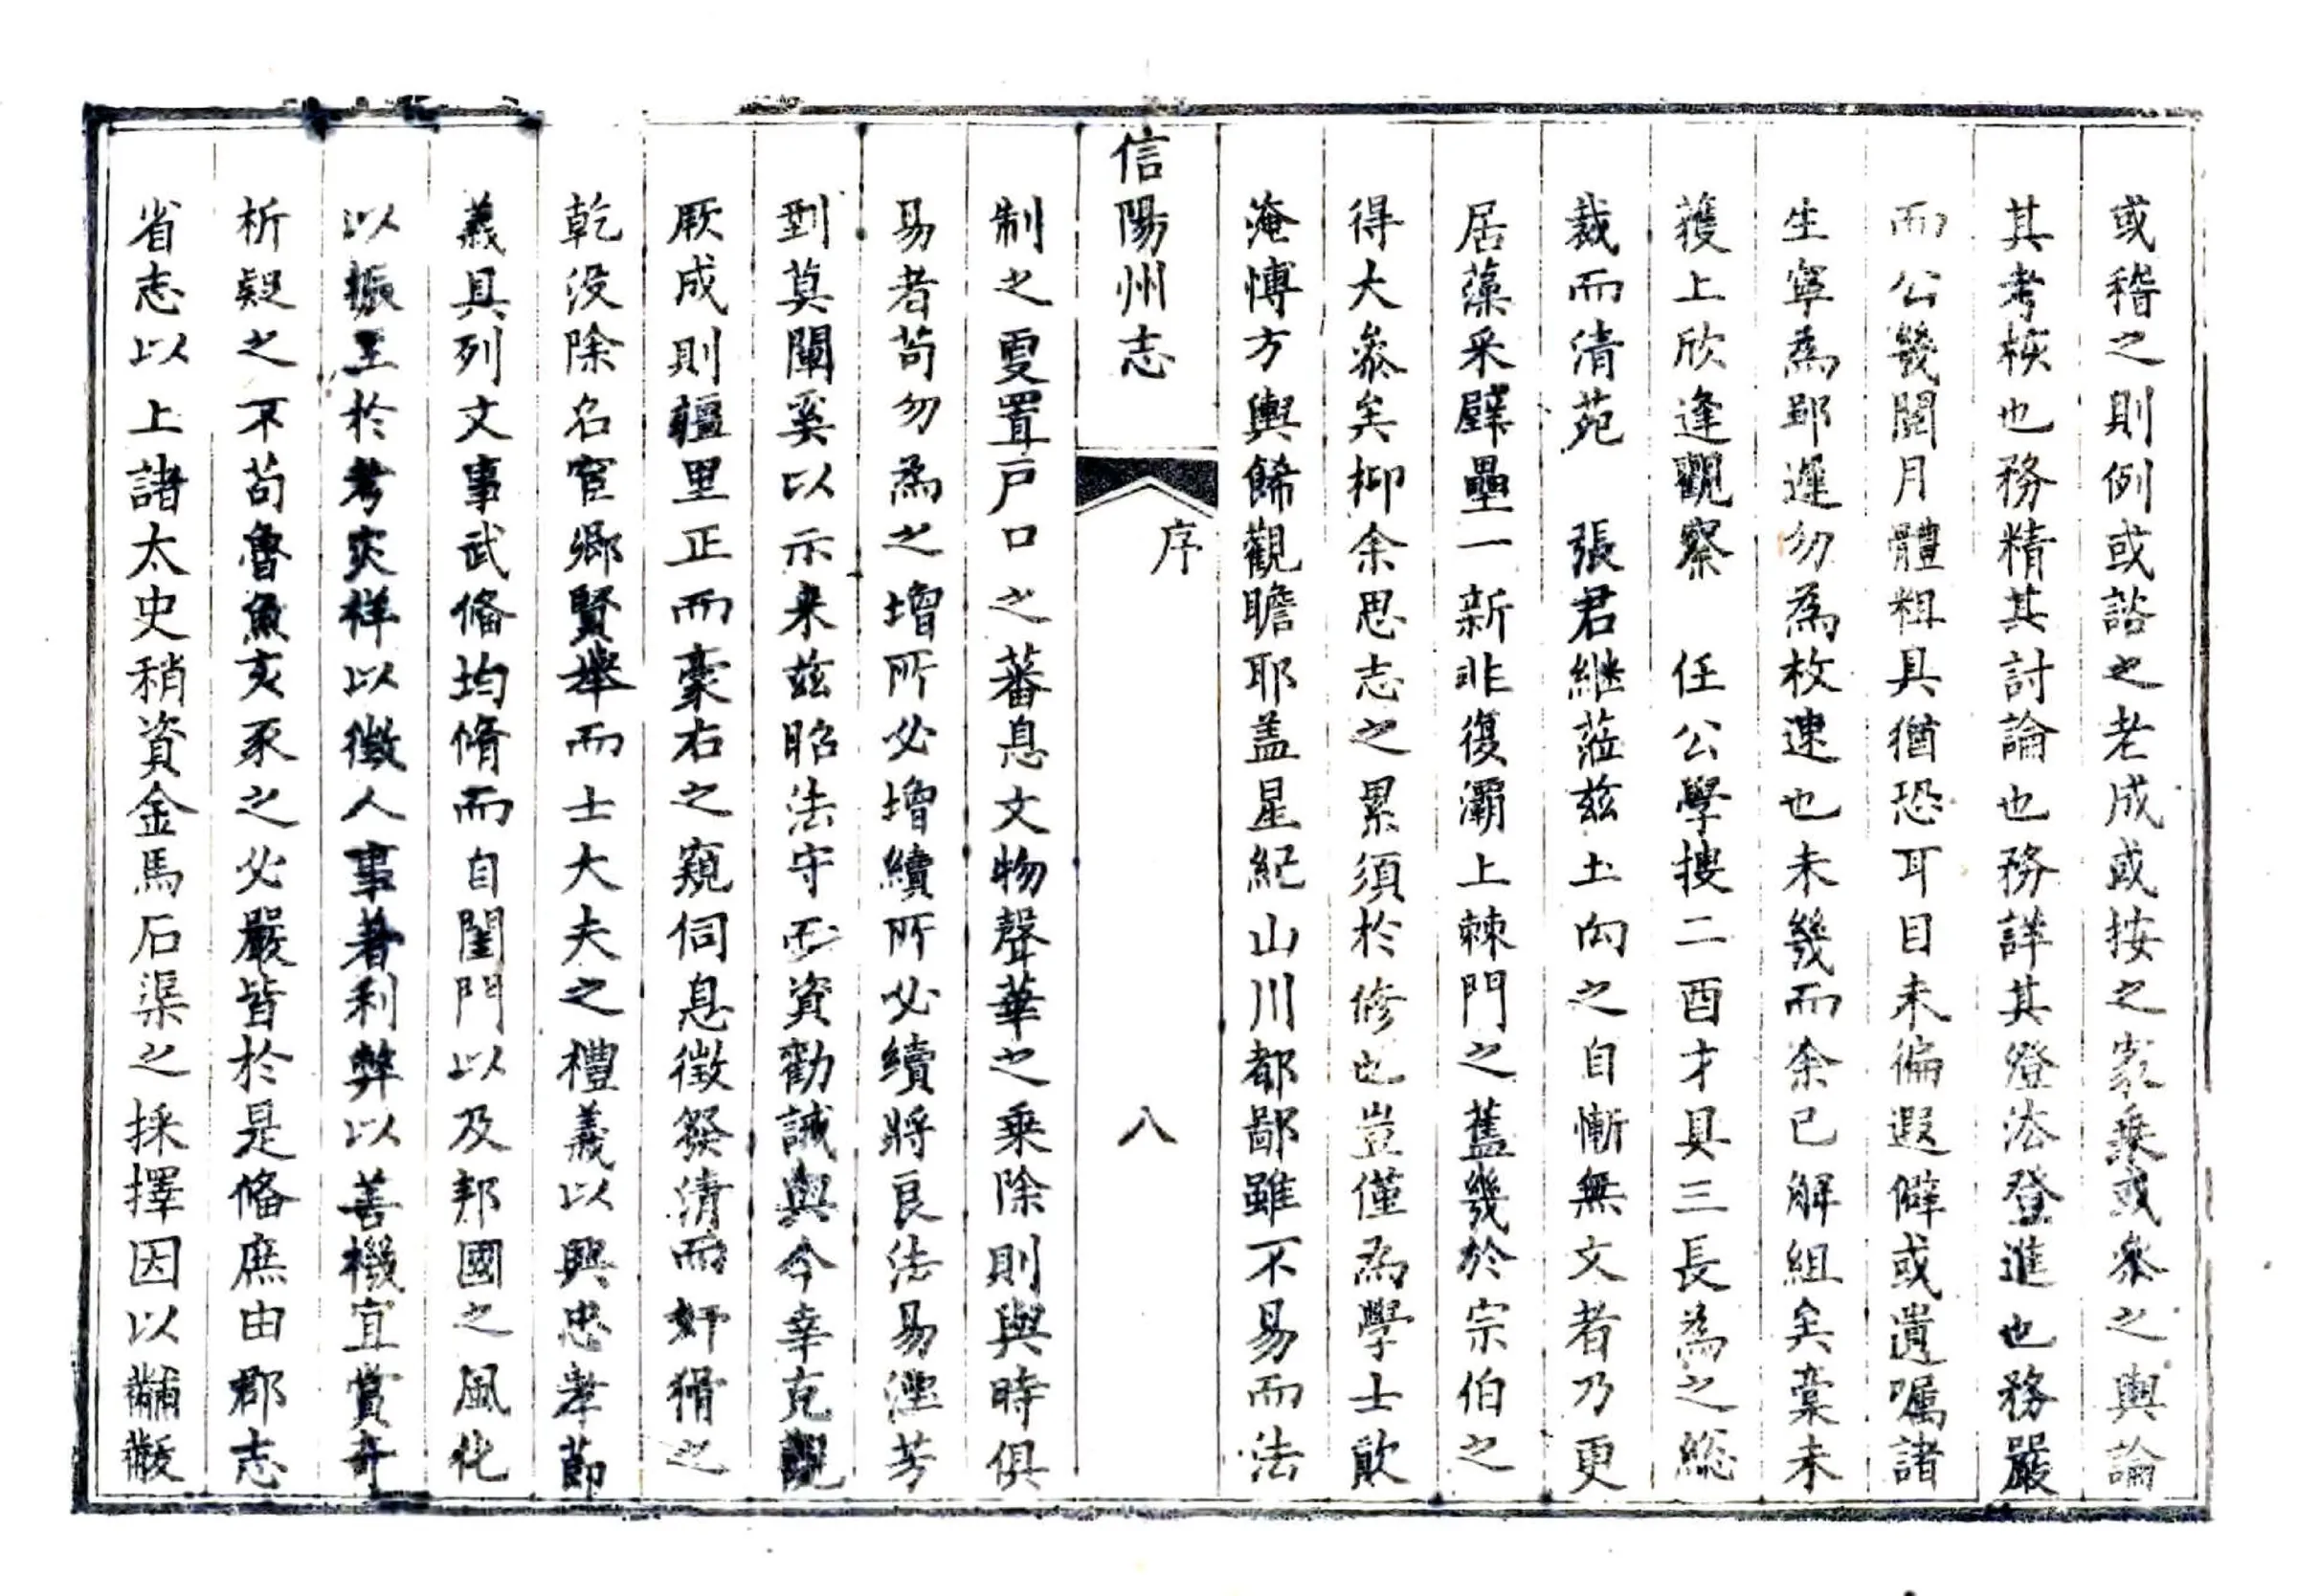 或稽之則例或諮之老成或按之家乗或叅之輿論
其考核也務精其討論也務詳其澄汰登進也務嚴
而公幾閱月體粗具猶恐耳目未徧遐僻或遺囑諸
生寧為郢遲勿為枚速也未幾而余已解組矣稾未
獲上欣逢觀察　任公學摟二酉才具三長為之総
裁而清苑　張君継蒞兹土向之自慚無文者乃更
居藻采壁壘一新非復灞上棘門之舊葢幾於宗伯之
得大叅矣抑余思志之累須於修也豈僅為學士歆
淹愽方輿餙觀瞻耶盖星紀山川都鄙雖不易而法
信陽州志
序
八
制之更置戶口之蕃息文物聲華之乗除則與時俱
易者茍勿為之增所必增續所必續將良法易湮芳
型莫闡奚以示来兹昭法守而資勸誡與今幸克覩
厥成則疆里正而豪右之窺伺息徵發清而奸猾之
乾没除名宦鄉賢舉而士大夫之禮義以興忠孝節
義具列文事武俻均脩而自閨門以及邦國之風化
以振至於考灾祥以徵人事著利弊以善機宜賞奇
析疑之不茍魯魚亥豕之必嚴皆於是俻庶由郡志
省志以上諸太史稍資金馬石渠之採擇因以黼黻